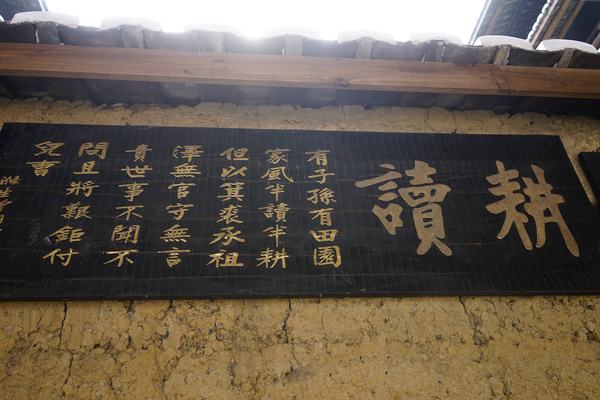 耕讀
有子孫有田園
家風半讀半耕
但以箕裘承祖
澤無官守無言
責世事不聞不
問且將艱鉅付
兒曹